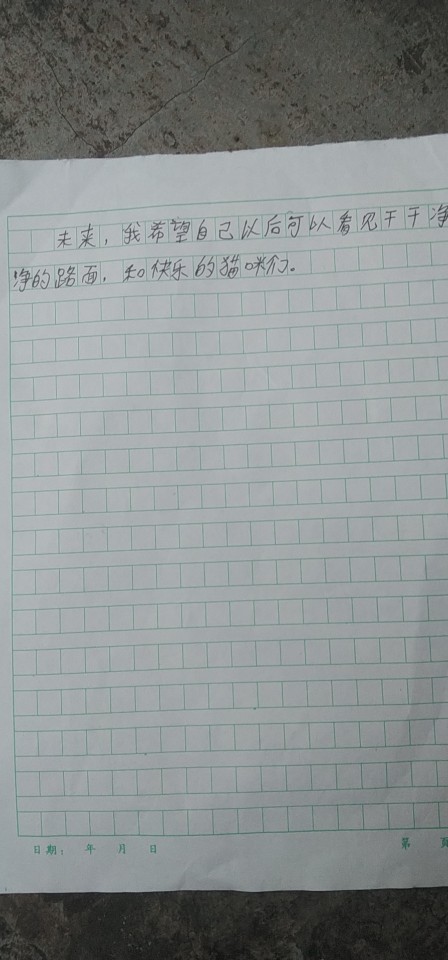 未来，我希望自己以后可以看见干干净
净的路面，和快乐的猫咪们。
日期： 年 月 日
第 页